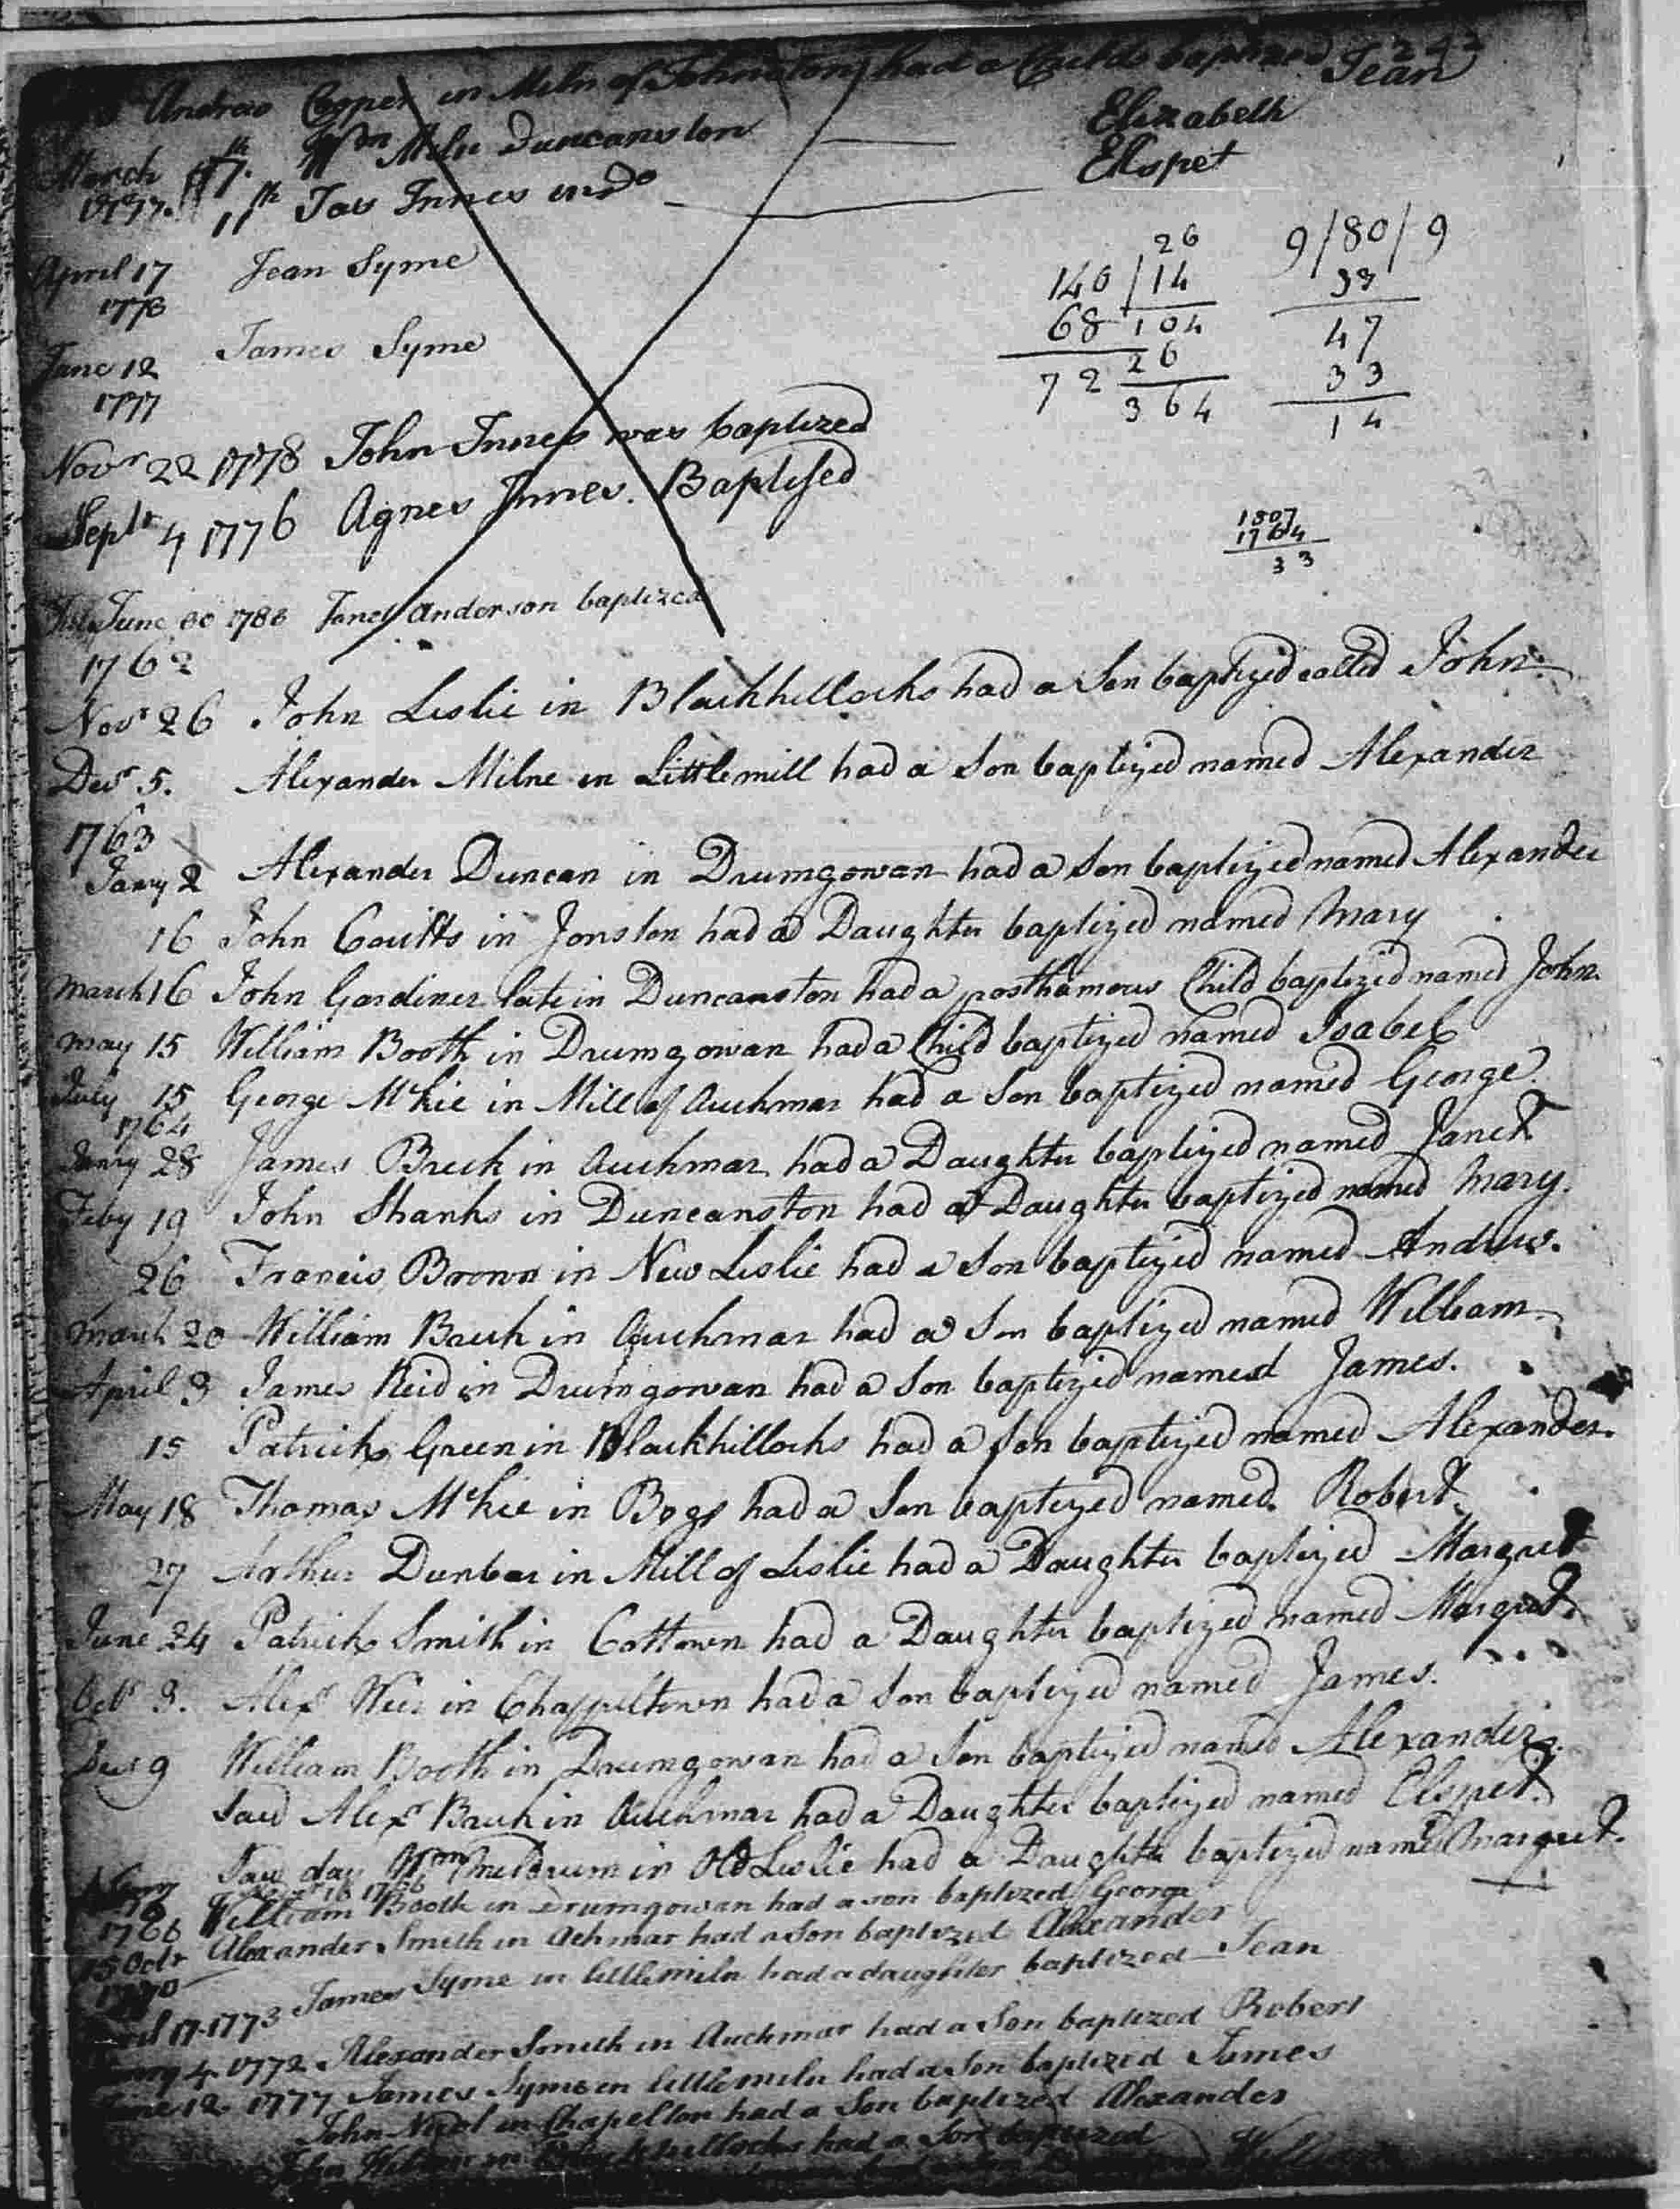 Andrew Cooper in Miln of Johnston had a Childe baptized Jean
March 7th Wm Miln Duncanston Elizabeth
1777. 11th Jas Innes in Do Elspet
April 17 Jean Syme
1773
June 12 James Syme
1777
26 9/80/9
140 / 14 33
68 104 47
26 33
72 364 14
Novr 22 1778 John Innes was baptized
Septr 4 1776 Agnes Innes. Baptised
1807
1764
33
June 1786 Janet Anderson baptized
1762
Novr 26 John Leslie in Blackhillocks had a Son baptized called John.
Decr 5. Alexander Milne in Littlemill had a Son baptized named Alexander
1763
Janry 2 Alexander Duncan in Drumgowan had a Son baptized named Alexander
16 John Coutts in Jonston had a Daughter baptized named Mary
March 16 John Gardiner late in Duncanston had a posthumous Child baptized named John.
May 15 William Booth in Drumgowan had a Child baptized named Isabel
July 15 George McKie in Mill of Auchmar had a Son baptized named George
1764
Janry 28 James Breck in Auchmar had a Daughter baptized named Janet
Feby 19 John Shanks in Duncanston had a Daughter baptized named Mary.
26 Francis Brown in New Leslie had a Son baptized named Andrew.
March 20 William Breck in Auchmar had a Son baptized named William.
April 3 James Reid in Drumgowan had a Son baptized named James.
15 Patrick Green in Blackhillocks had a Son baptized named Alexander.
May 18 Thomas McKie in Bogs had a Son baptized named Robert
27 Arthur Dunbar in Mill of Leslie had a Daughter baptized Margret
June 24 Patrick Smith in Cottown had a Daughter baptized named Margret.
Octr 3. Alexr Weir in Chappeltown had a Son baptized named James.
Decr 9 William Booth in Drumgowan had a Son baptized named Alexander.
Said Alexr Breck in Auchmar had a Daughter baptized named Elspet.
Said day Wm Meldrum in Old Leslie had a Daughter baptized named Margret.
16 1766
1766 William Booth in Drumgowan had a son baptized George
15 Octr Alexander Smith in Achmar had a Son baptized Alexander
1770
April 17 1773 James Syme in littlemiln had a daughter baptized Jean
4 1772 Alexander Smith in Auchmar had a Son baptized Robert
June 12 1777 James Syme in littlemiln had a Son baptized James
John Nicol in Chapelton had a Son baptized Alexander
John in Blackhillocks had a Son baptized William